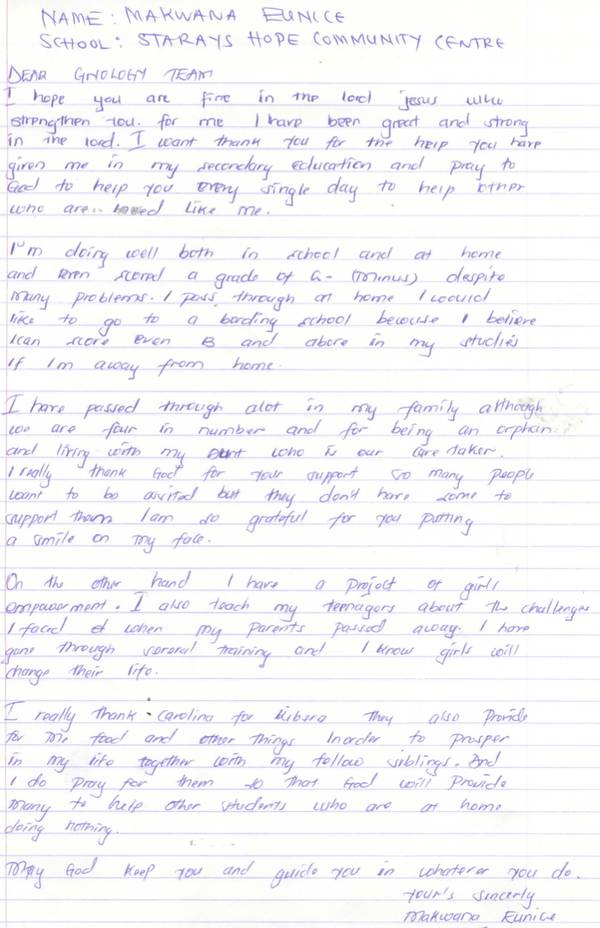 NAME: MAKWANA EUNICE
SCHOOL: STARAYS HOPE COMMUNITY CENTRE
DEAR GNOLOGY TEAM
I hope you are fine in the lord jesus who
strengthen you. for me I have been great and strong
in the lord. I want thank you for the help you have
given me in my secondary education and pray to
God to help you every single day to help other
who are like me.
I'm doing well both in school and at home
and even scored a grade of C- (minus) despite
many problems. I pass through at home I would
like to go to a boarding school because I believe
I can score even B and above in my studies
if Im away from home.
I have passed through alot in my family although
we are four in number and for being an orphan
and living with my aunt who is our care taker.
I really thank God for your support so many people
want to be assisted but they don't have some to
support them I am so grateful for you putting
a smile on my face.
On the other hand I have a project of girls
empowerment. I also teach my teenagers about the challenges
I faced when my parents passed away. I have
gone through several training and I know girls will
change their life.
I really thank carolina for kibera they also provide
for me food and other things inorder to prosper
in my life together with my fellow siblings. And
I do pray for them so that God will provide
many to help other students who are at home
doing nothing.
May God keep you and guide you in whatever you do.
Your's sincerly
Makwana Eunice